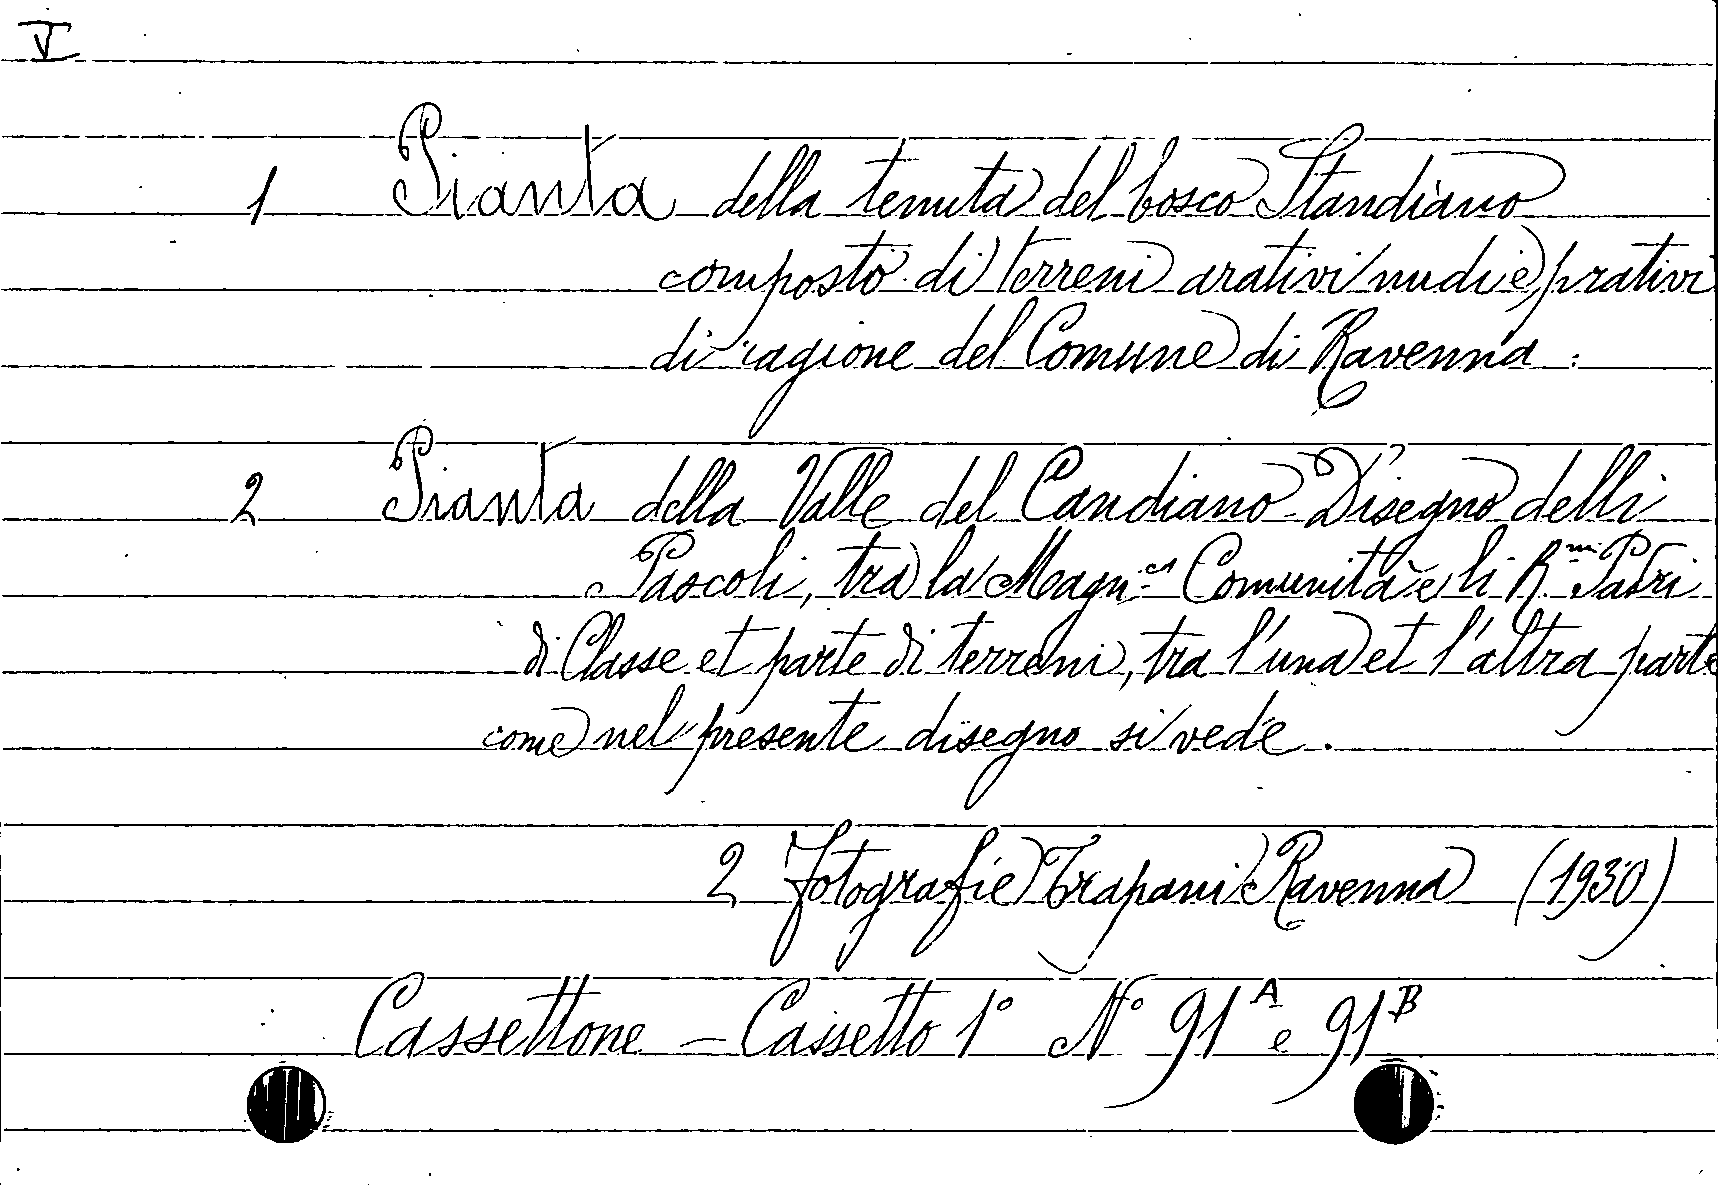 V
1 Pianta della tenuta del bosco Standiano
composto di terreni arativi nudi e prativi
di ragione del Comune di Ravenna.
2 Pianta della Valle del Candiano - Disegno delli
Pascoli, tra la Magn.ca Comunità e li R.mi Padri
di Classe et parte di terreni, tra l'una et l'altra parte
come nel presente disegno si vede.
2 Fotografie Trapani Ravenna (1930)
Cassettone - Cassetto 1° N° 91A e 91B